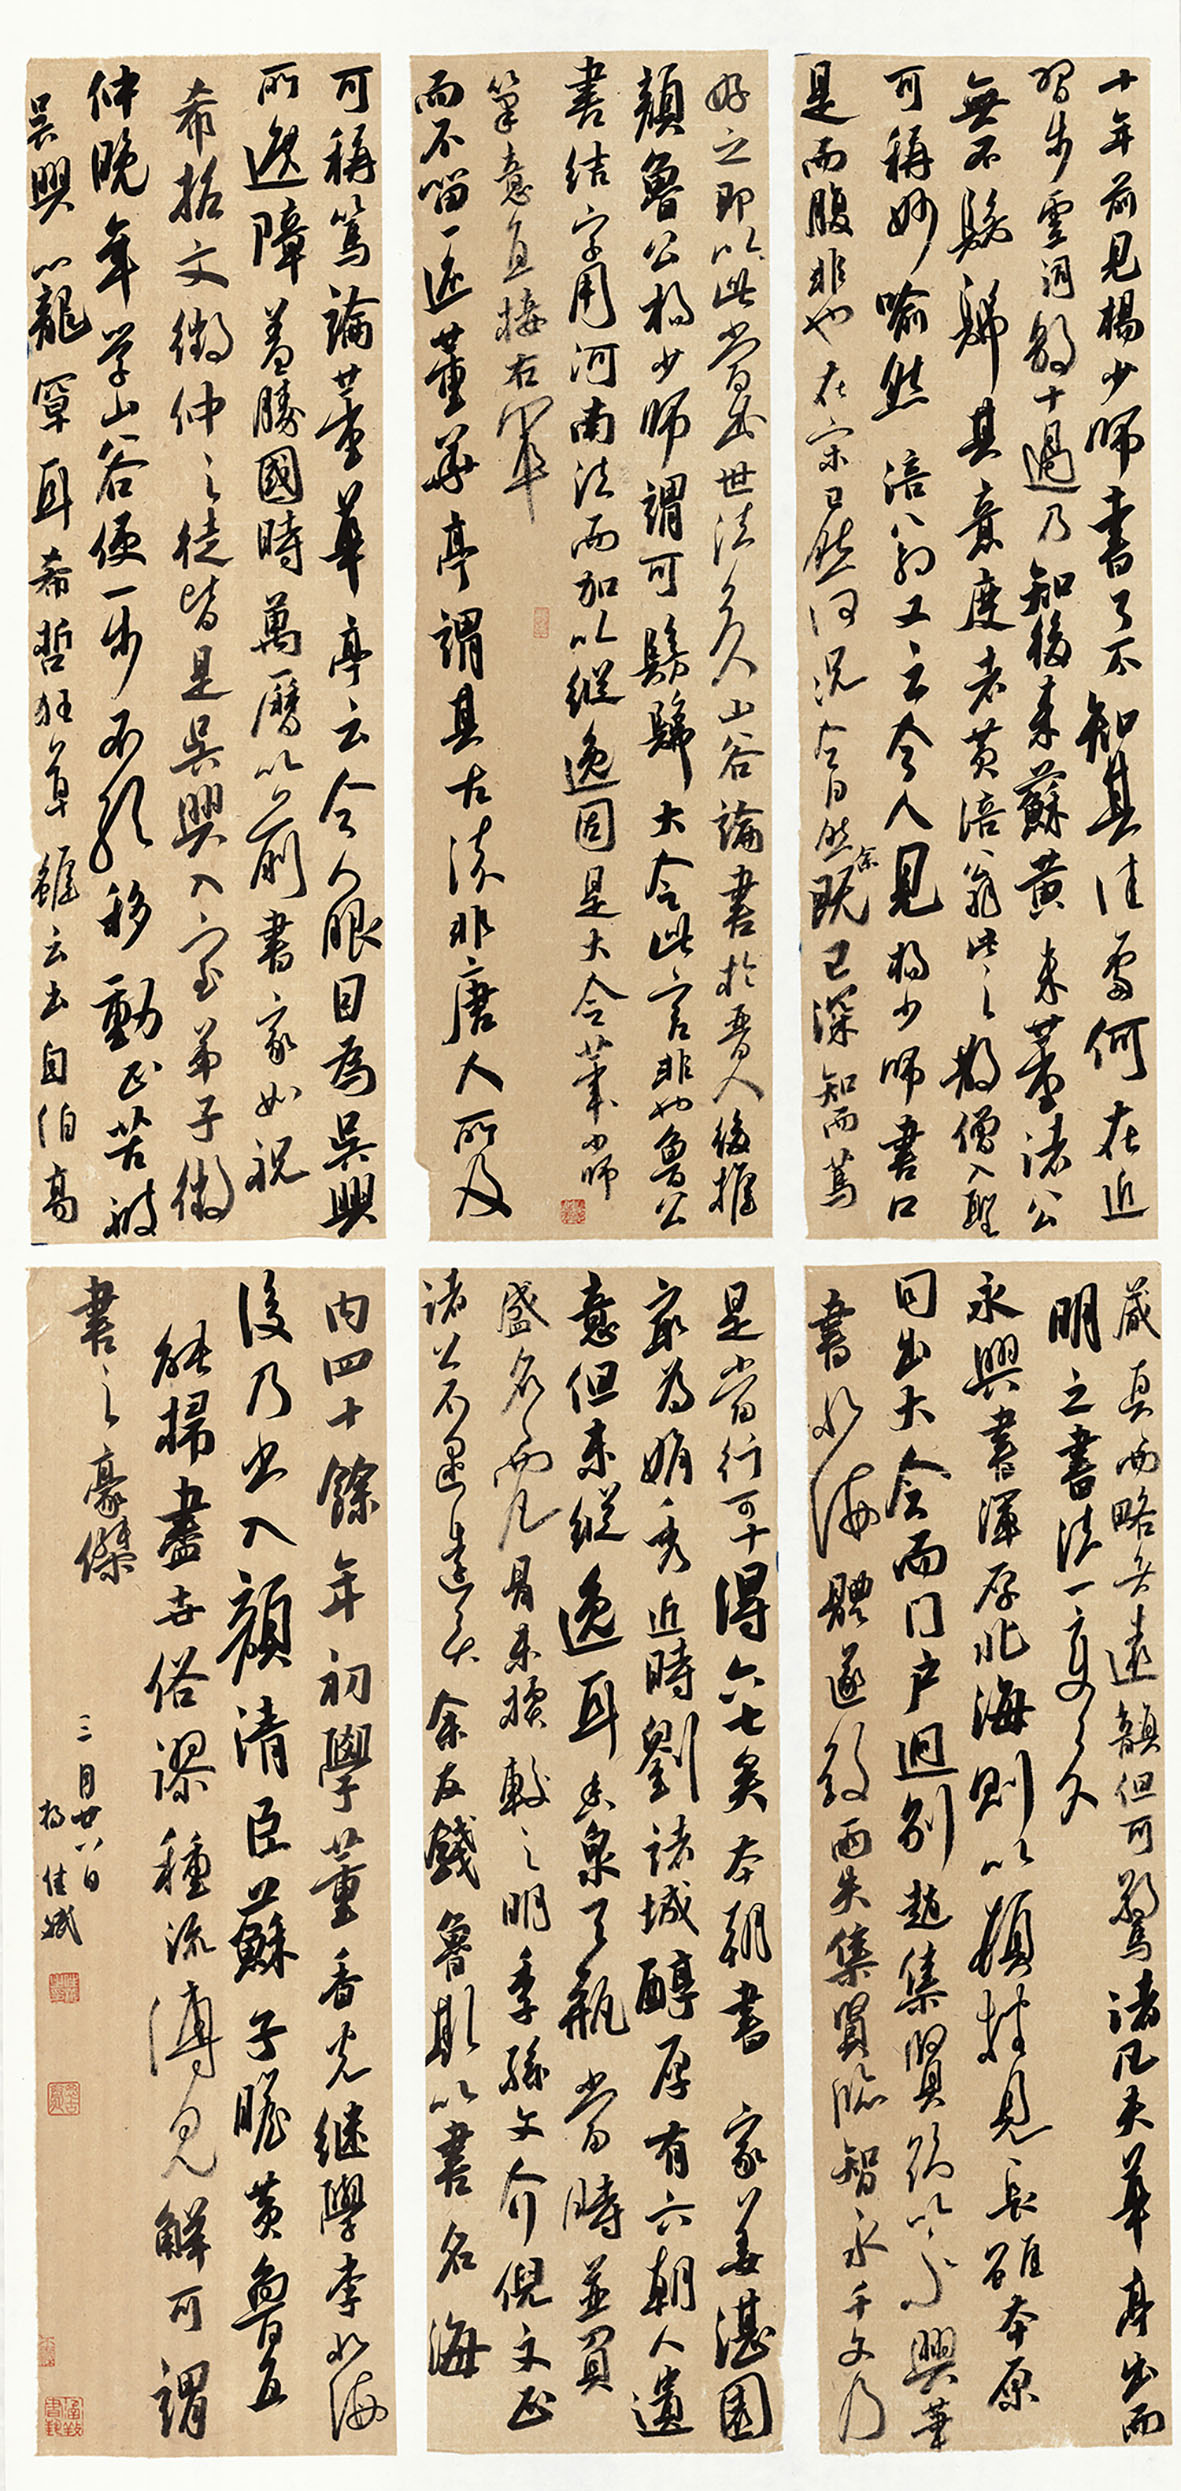 十年前見楊少師書了不知其佳處何在近
習步虛詞數十過乃知後來蘇黃米董諸公
無不髣髴其意度者黃涪翁比之散僧入聖
可稱妙喻然涪翁又云今人見楊少師書口
是而腹非也在宋已然何況今日然余既已深知而篤
好之即以此當出世法久矣山谷論書於晉人後推
顏魯公楊少師謂可髣髴大令此言非也魯公
書結字用河南法而加以縱逸固是大令筆少師
筆意直接右軍
而不留一迹董華亭謂其古淡非唐人所及
可稱篤論董華亭云今人眼目為吳興
所遮障蓋勝國時萬曆以前書家如祝
希哲文徵仲之徒皆是吳興入室弟子徵
仲晚年學山谷便一步不能移動正苦被
吳興以籠罩耳希哲狂草雖云出自伯高
藏真而略無遠韻但可驚諸凡夫華亭出而
明之書法一變矣
永興書渾厚北海則以頓挫見長雖本原
同出大令而門戶迥別趙集賢欲以永興筆
書北海體遂致兩失集賢臨智永千文乃
是當行可十得六七矣本朝書家姜湛園
最為娟秀近時劉諸城醇厚有六朝人遺
意但未縱逸耳香泉天瓶當時並負
盛名而凡骨未換較之明季孫文介倪文正
諸公不逮遠矣余友錢魯斯以書名海
內四十餘年初學董香光繼學李北海
後乃出入顏清臣蘇子瞻黃魯直
能掃盡世俗謬種流傳見解可謂
書之豪傑
三月廿八日
楊佳斌